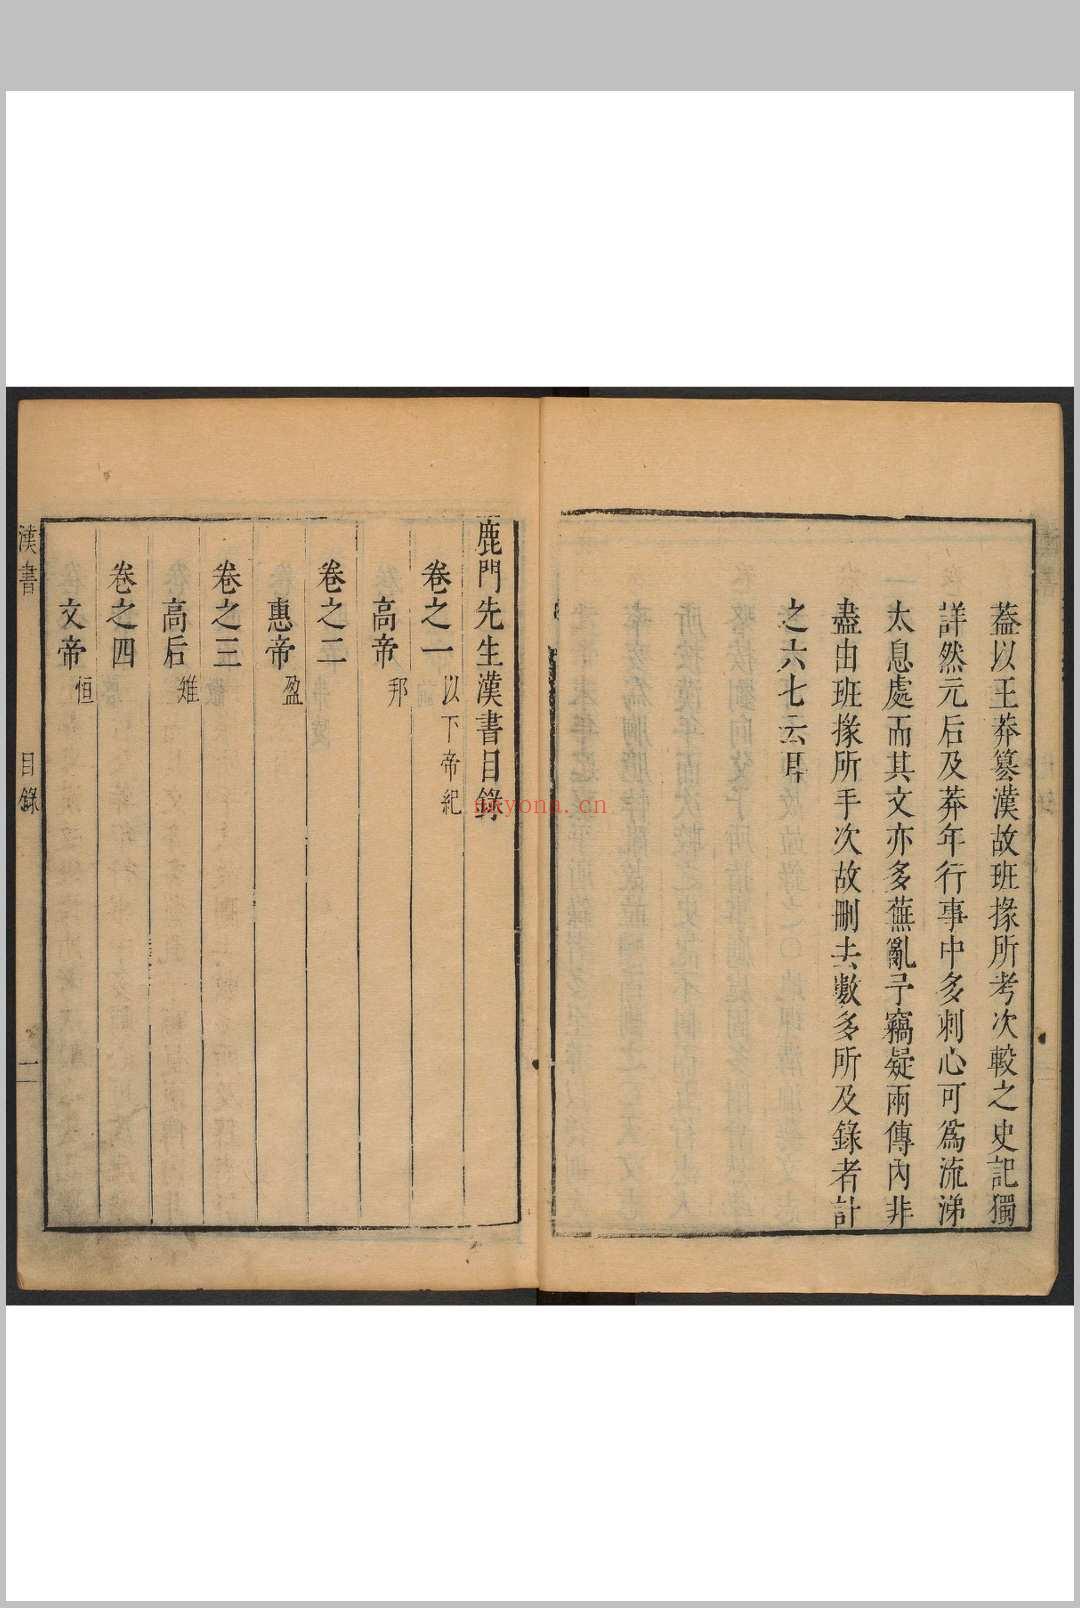 蓋以王莽篡漢故班掾所考次較之史記獨
詳然元后及莽年行事中多刺心可爲流涕
太息處而其文亦多蕪亂予竊疑兩傳內非
盡由班掾所手次故刪去數多所及錄者計
之六七云耳
鹿門先生漢書目錄
卷之一 以下帝紀
高帝 邦
卷之二
惠帝 盈
卷之三
高后 雉
卷之四
文帝 恒
漢書 目錄 一
nkyona.cn